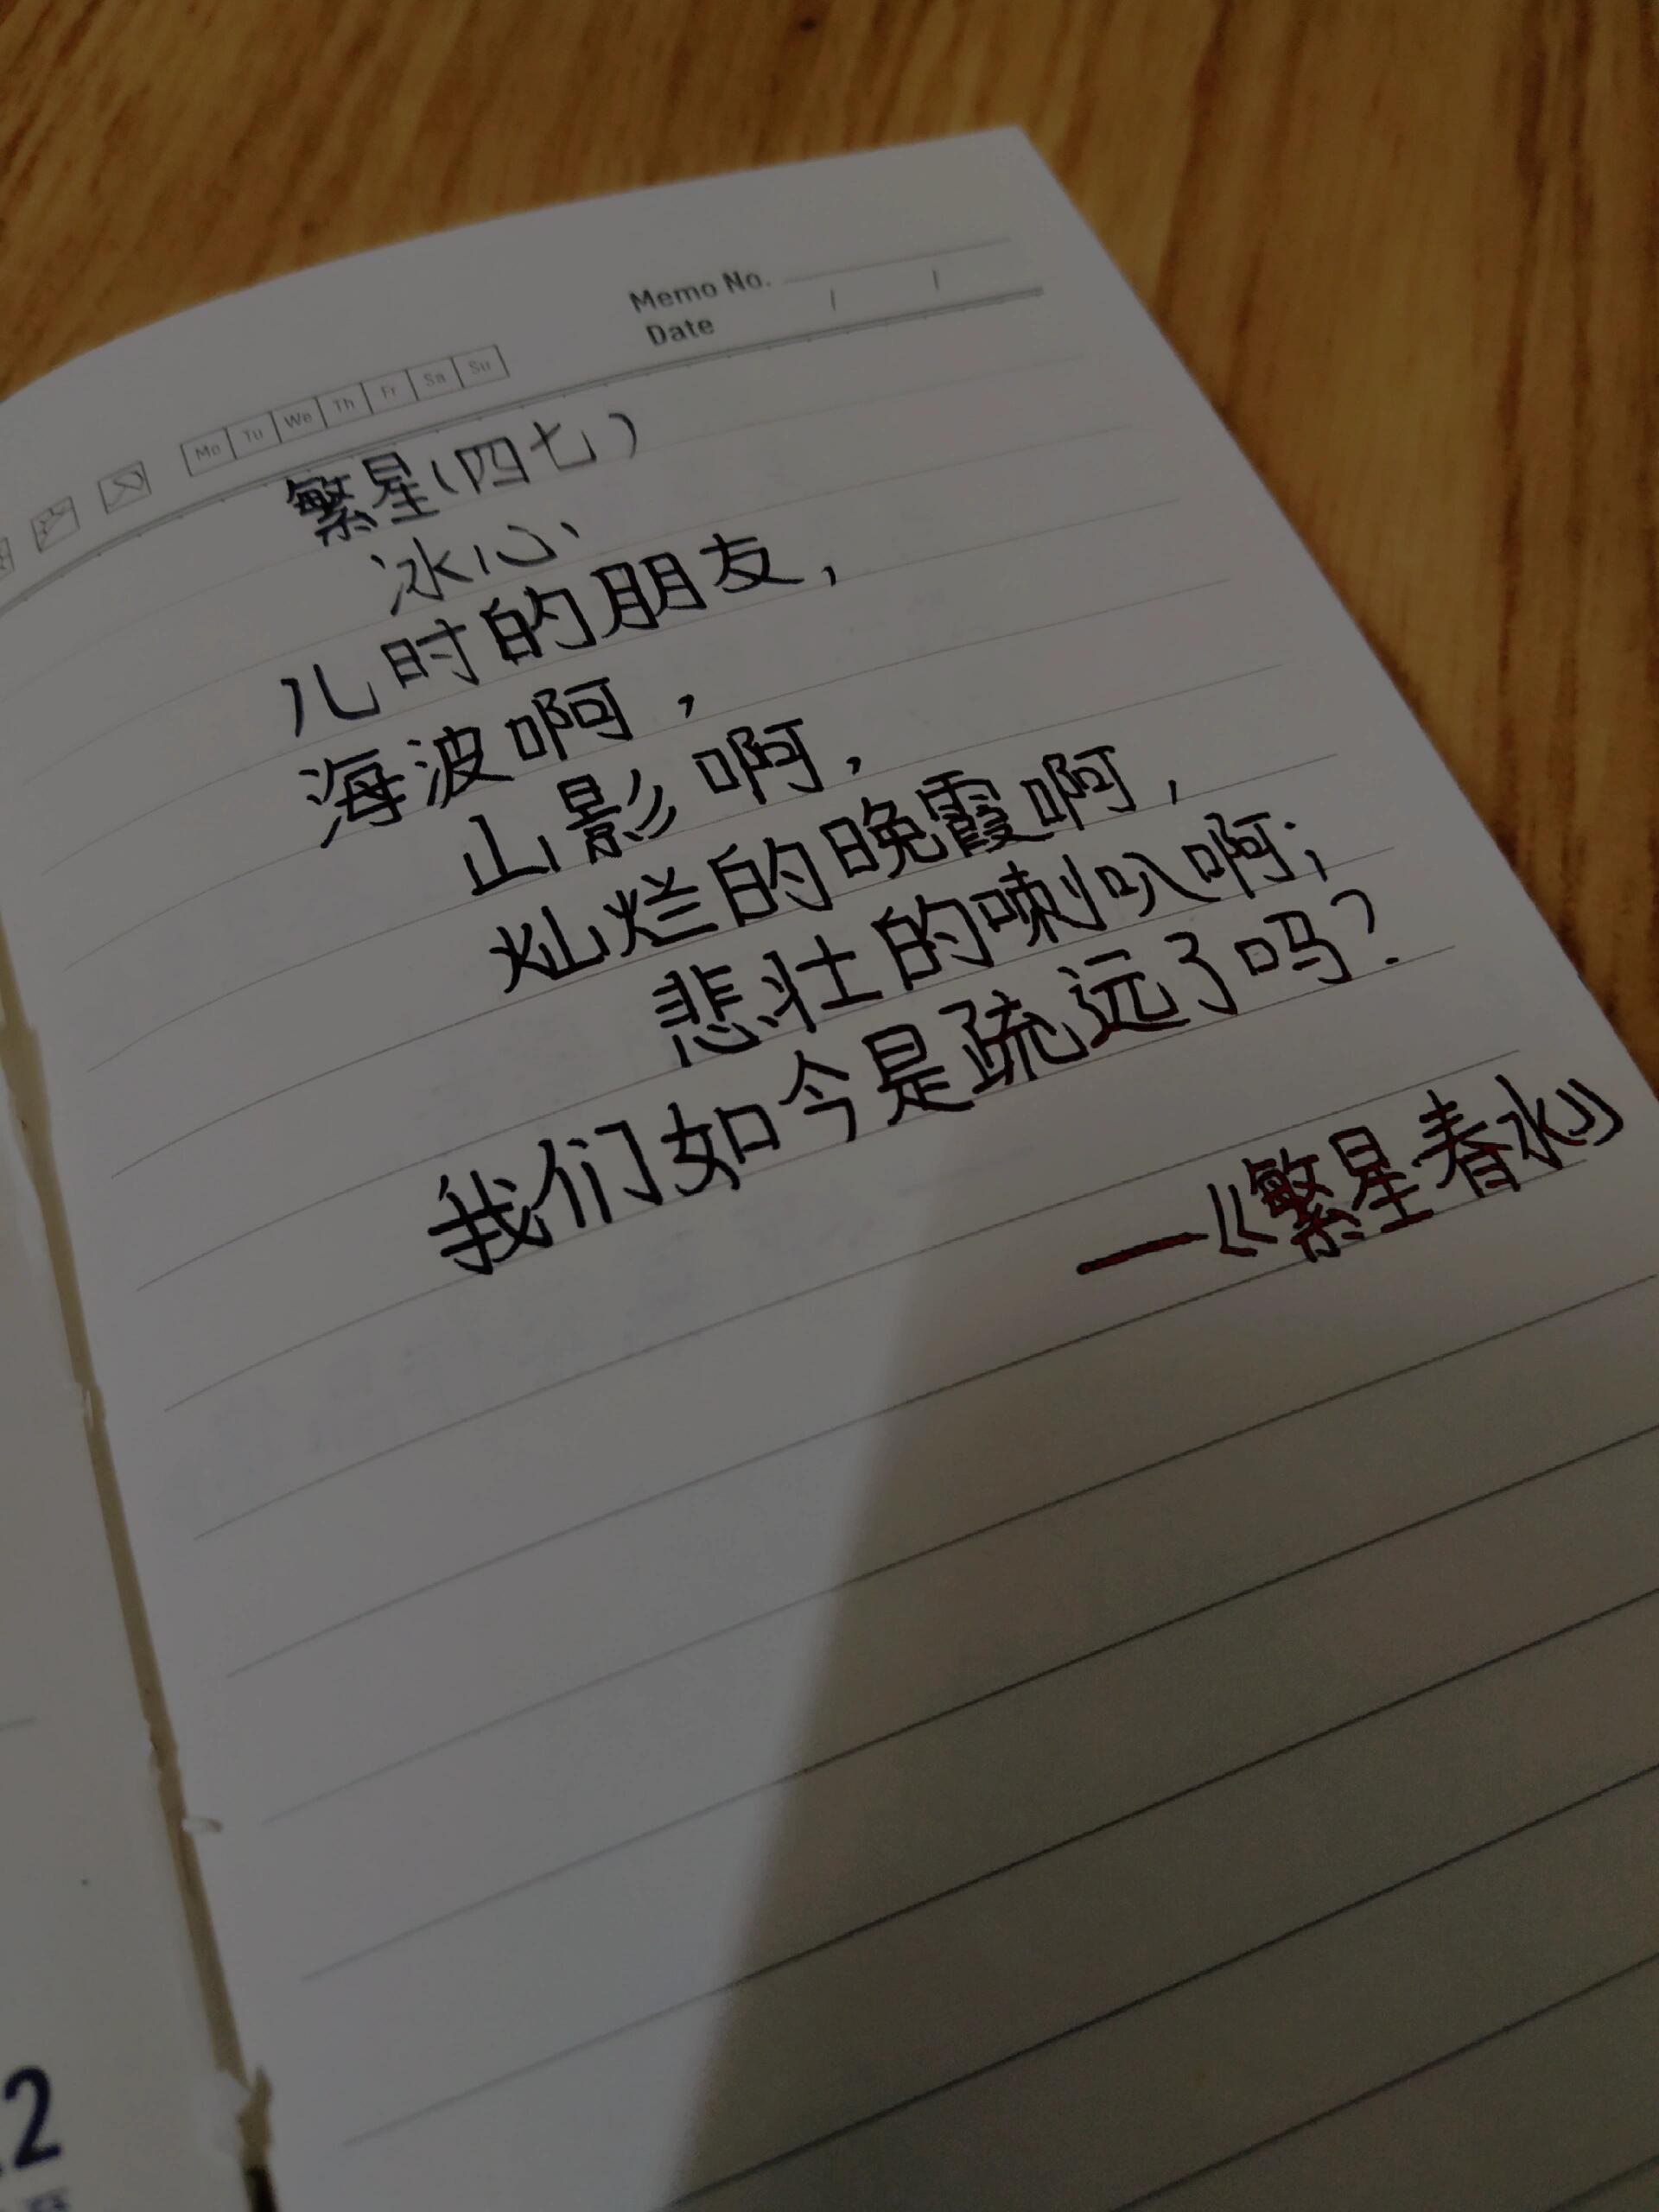 Memo No.
Date / /
Mo Tu We Th Fr Sa Su
繁星(四七)
冰心
儿时的朋友,
海波啊,
山影啊,
灿烂的晚霞啊,
悲壮的喇叭啊;
我们如今是疏远了吗?
—《繁星春水》
2